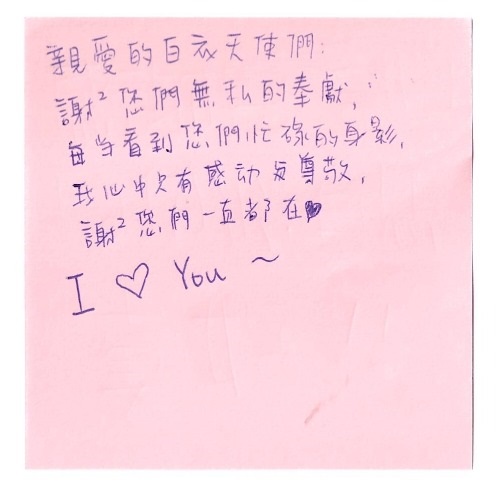 親愛的白衣天使們:
謝² 您們無私的奉獻,
每当看到您們忙碌的身影,
我心中只有感动与尊敬,
謝² 您們一直都在♥
I ♡ You ~